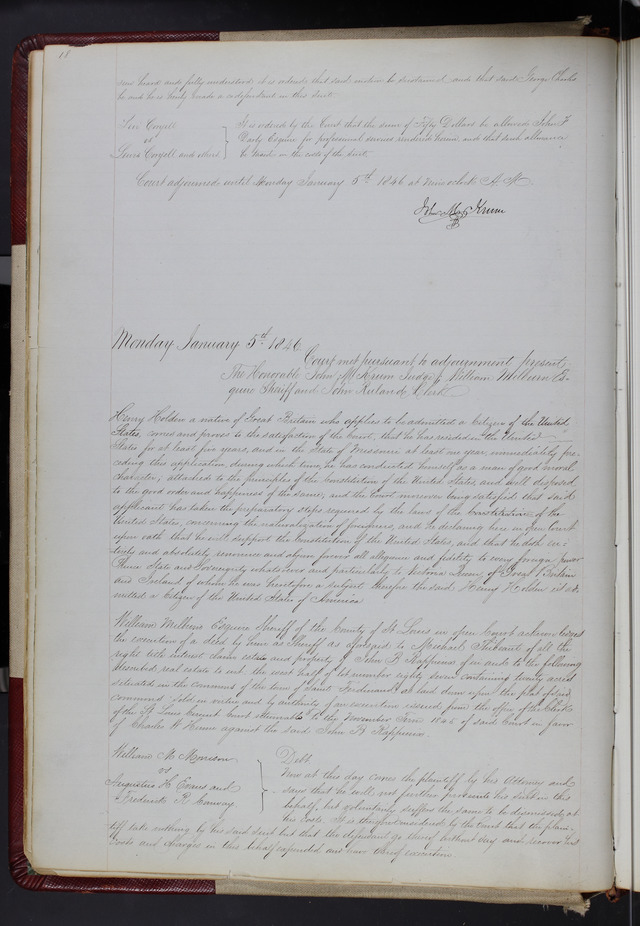 18
now heard and fully understood it is ordered that said motion be sustained and that said George Charles
be and he is hereby made a codefendant in this suit.
Levi Coryell
vs
Lewis Coryell and others
It is ordered by the Court that the sum of Fifty Dollars be allowed John F
Darby Esquire for professional services rendered herein and that such allowance
be taxed in the costs of the suit.
Court adjourned until Monday January 5th 1846 at nine o'clock A.M.
John M. Krum
Monday January 5th 1846
Court met pursuant to adjournment, present
The Honorable John M Krum Judge, William Milburn Es-
quire Sheriff and John Ruland Clerk
Henry Holden a native of Great Britain who applies to be admitted a Citizen of the United
States, comes and proves to the satisfaction of the Court, that he has resided in the United
States for at least five years, and in the State of Missouri at least one year, immediately pre-
ceding this application, during which time, he has conducted himself as a man of good moral
character, attached to the principles of the Constitution of the United States, and well disposed
to the good order and happiness of the same; and the Court moreover being satisfied that said
applicant has taken the preparatory steps required by the laws of the Constitution of the
United States, concerning the naturalization of foreigners, and he declaring here in open Court
upon oath that he will support the Constitution of the United States, and that he doth en-
tirely and absolutely renounce and abjure forever all allegiance and fidelity to every foreign power
Prince State and Sovereignty whatsoever and particularly to Victoria Queen of Great Britain
and Ireland of whom he was heretofore a subject therefore the said Henry Holden is ad-
mitted a Citizen of the United States of America
William Milburn Esquire Sheriff of the County of St Louis in open Court acknowledges
the execution of a deed by him as Sheriff as aforesaid to Michael of all the
right title interest claim estate and property of John B Rappieux of in and to the following
described real estate to wit the west half of lot number eighty seven containing twenty acres
situated in the commons of the town of Saint Ferdinand as laid down upon the plat of said
commons sold in virtue and by authority of an execution issued from the office of the Clerk
of the St Louis Circuit Court returnable to the November Term 1845 of said Court in favor
of Charles W. against the said John B Rappieux.
William M Morrison
vs
Augustus H Evans and
Frederick R Conway
Debt
Now at this day comes the plaintiff by his Attorney and
says that he will not further prosecute his suit in this
behalf, but voluntarily suffers the same to be dismissed at
his costs. It is therefore considered by the Court that the plain-
tiff take nothing by his said suit but that the defendants go thereof without day and recover their
costs and charges in this behalf expended and have thereof execution.